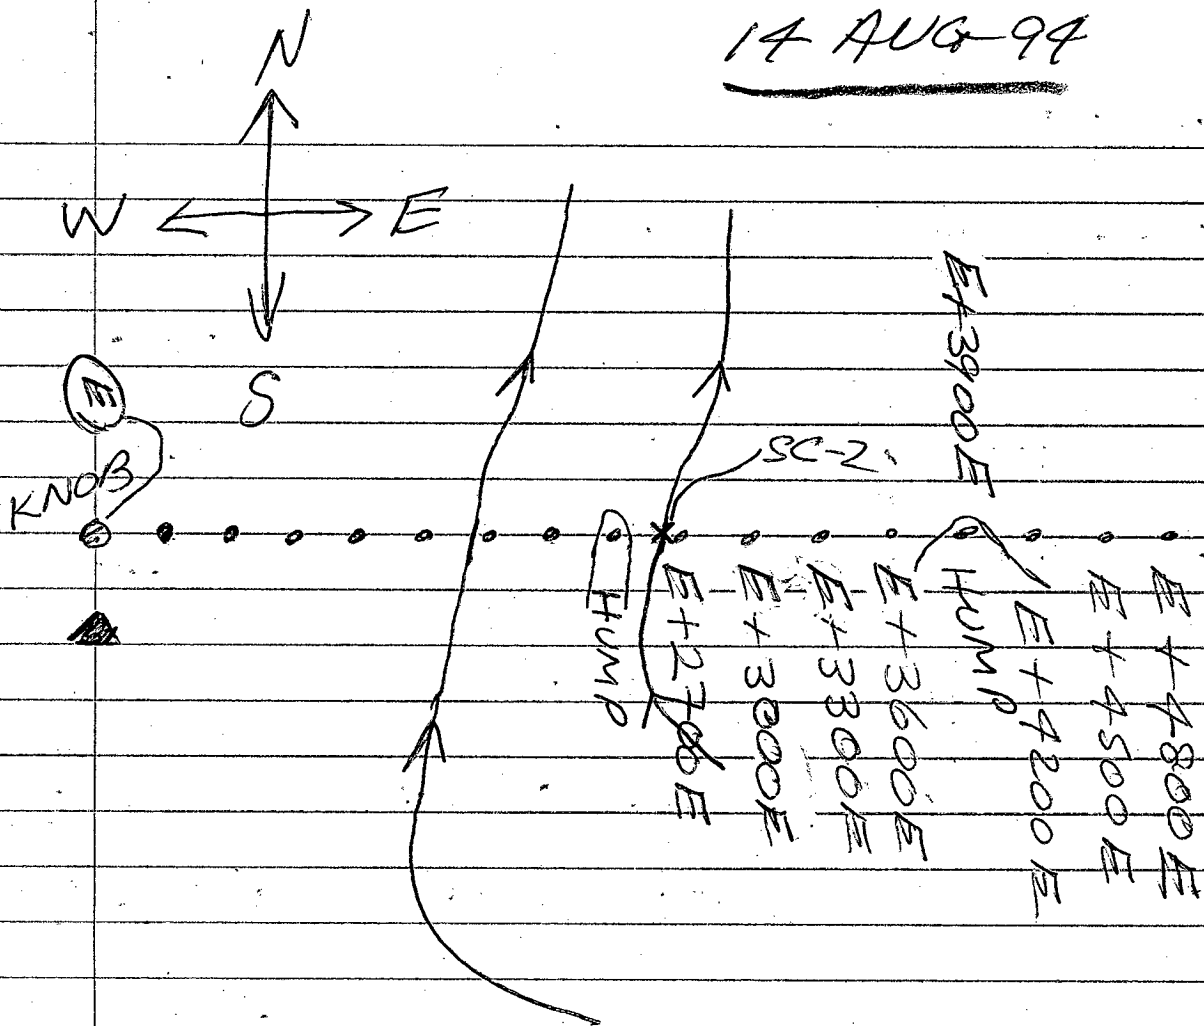 14 AUG-94
N
W E
S
E
KNOB
SC-2
E+3900E
HUMP
E+2700E
E+3000E
E+3300E
E+3600E
HUMP
E+4200E
E+4500E
E+4800E